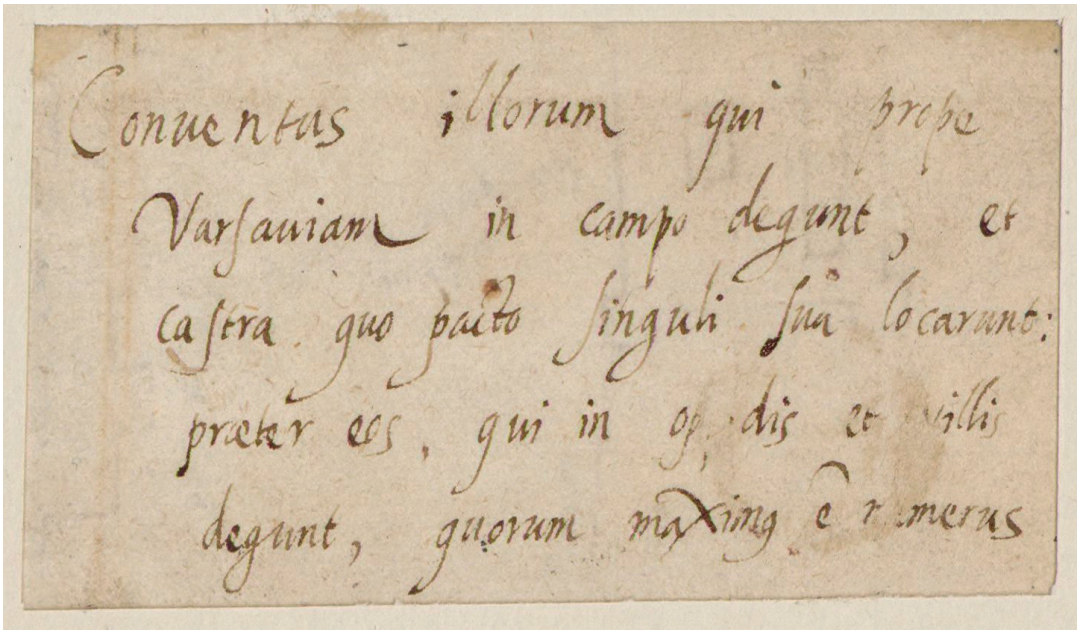 Conuentus illorum qui prope
Varsauiam in campo degunt, et
castra quo pacto singuli sua locarunt:
præter eos, qui in et villis
degunt, quorum maximꝯ ē numerus